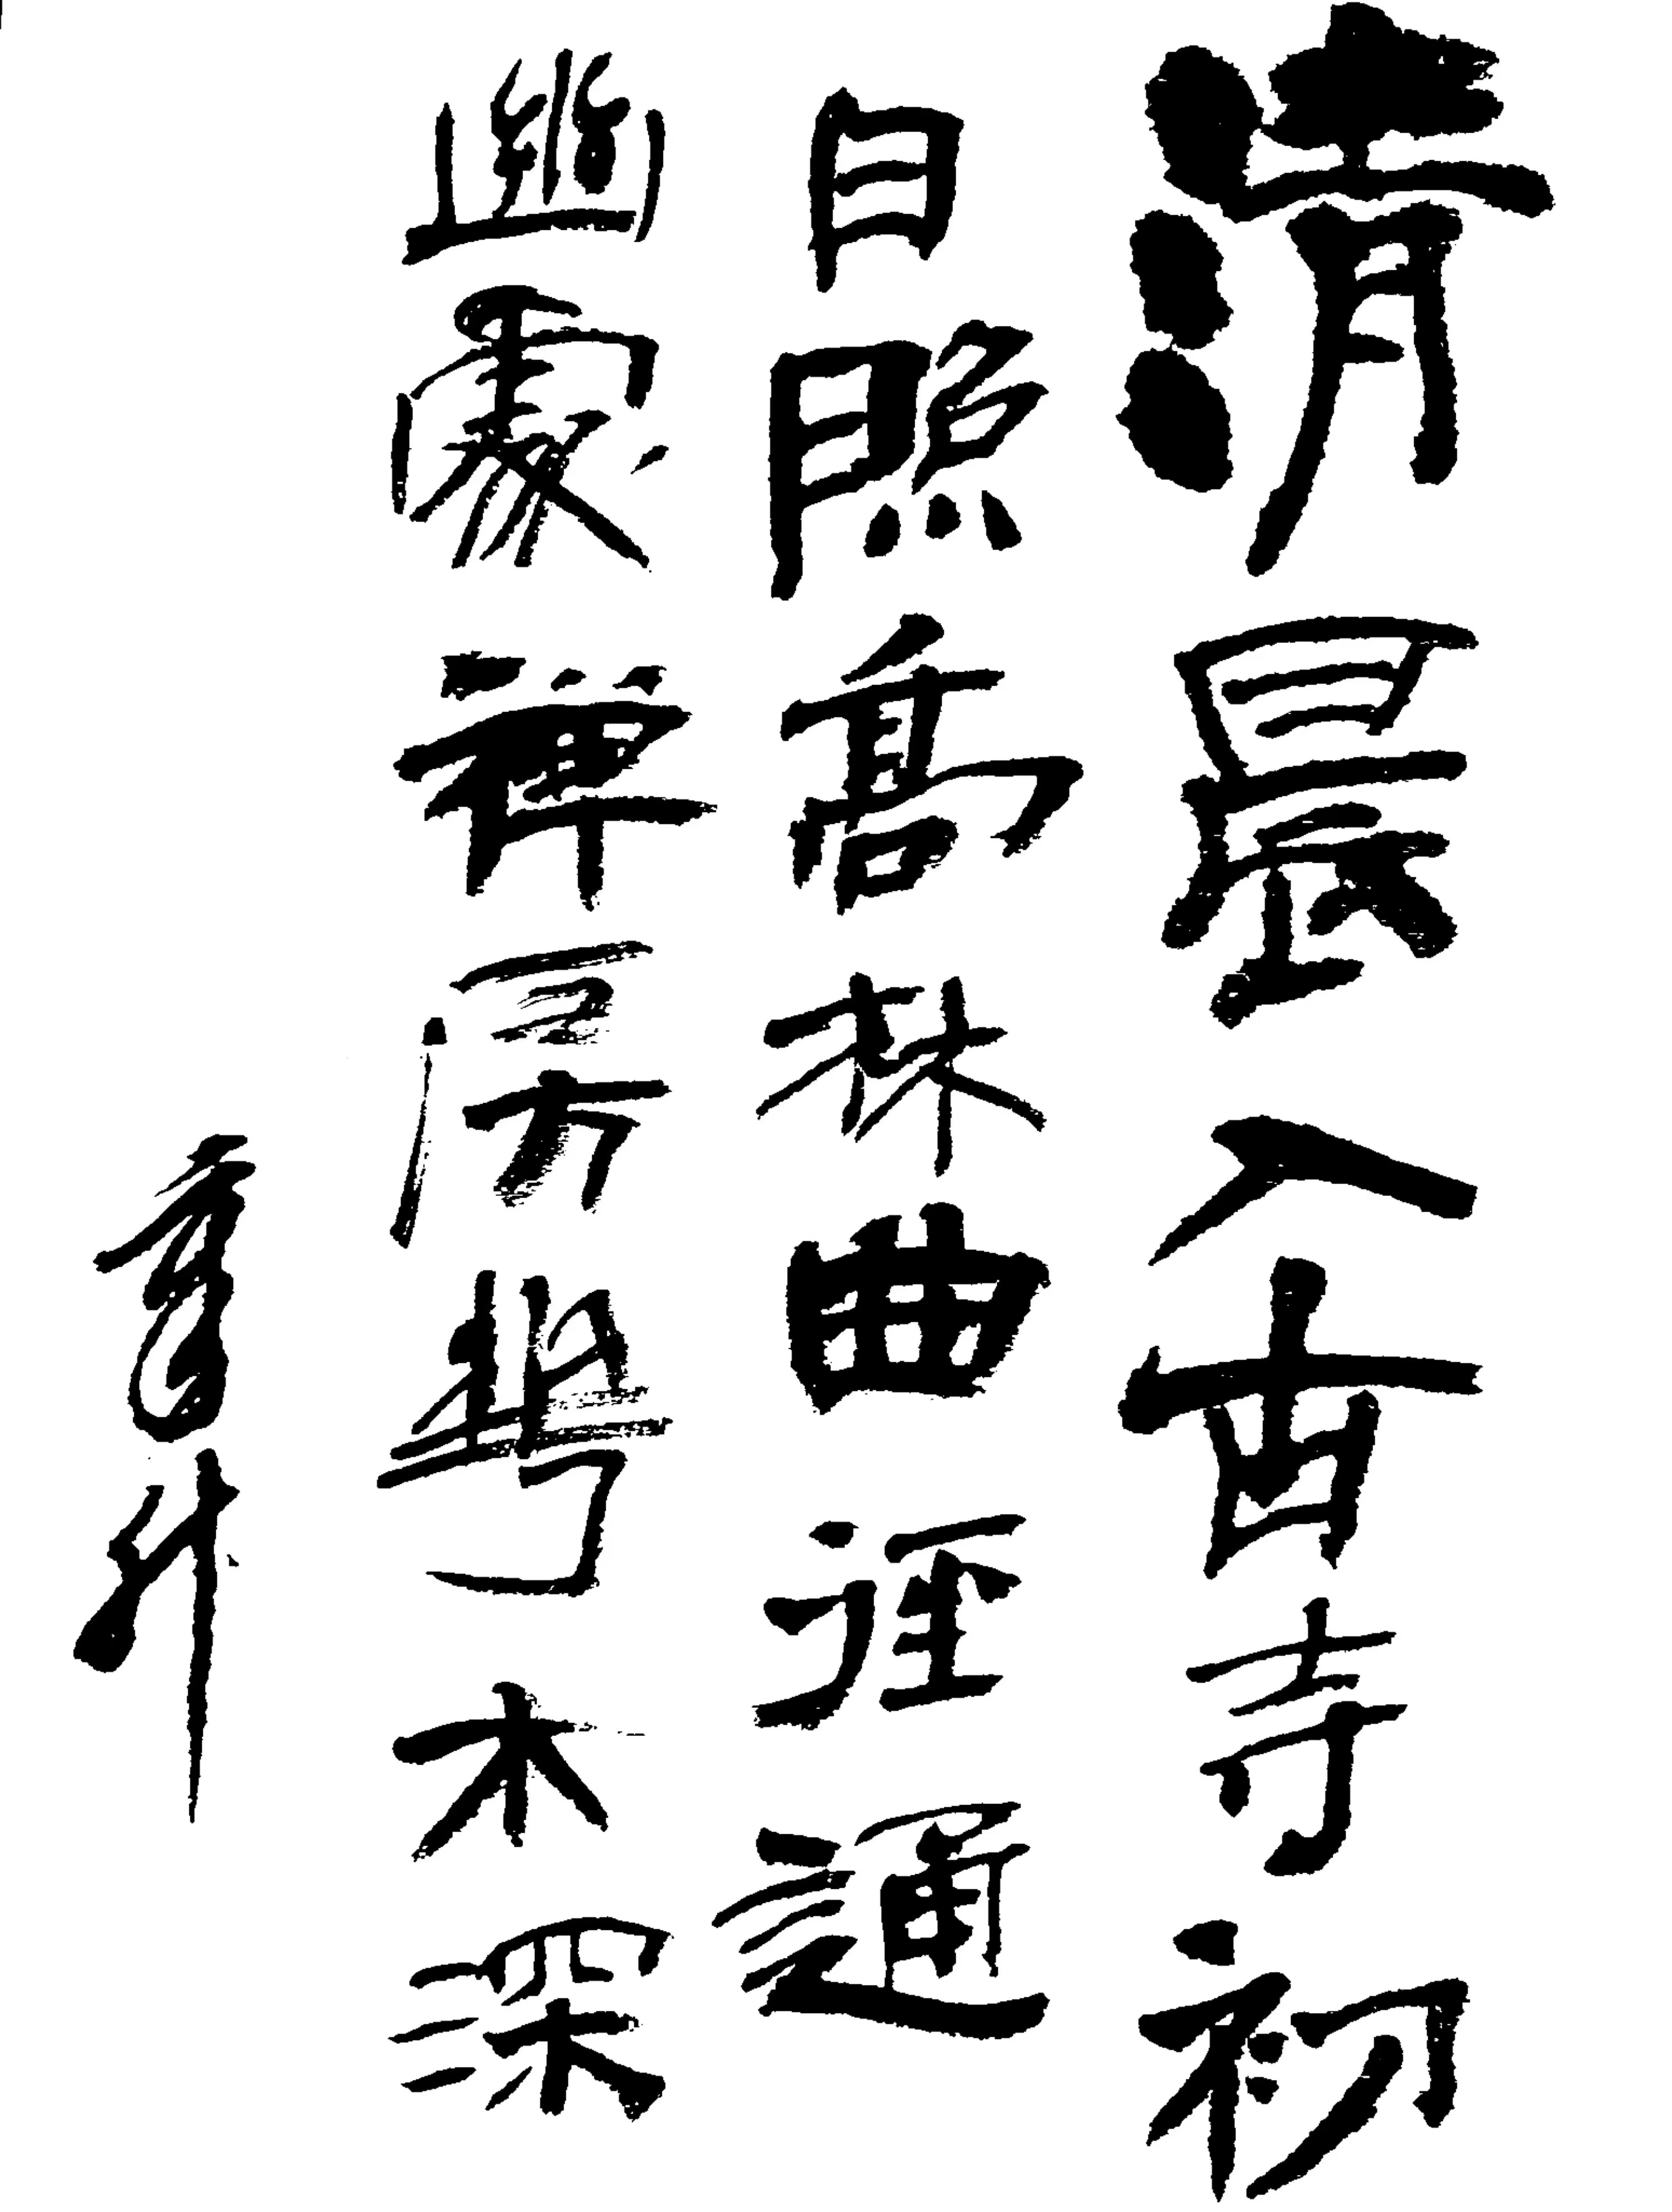 清晨入古寺初
日照高林曲徑通
幽處禪房華木深